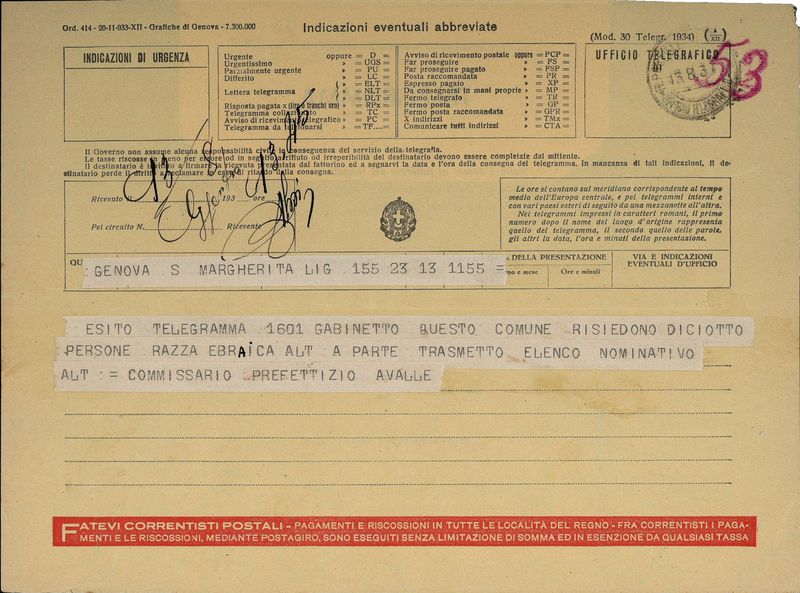 Ord. 414 - 20-11-933-XII - Grafiche di Genova - 7.300.000
Indicazioni eventuali abbreviate
(Mod. 30 Telegr. 1934) (A XII)
INDICAZIONI DI URGENZA
Urgente oppure = D =
Urgentissimo » = UGS =
Parzialmente urgente » = PU =
Differito » = LC =
» = ELT =
Lettera telegramma » = NLT =
» = DLT =
Risposta pagata x (lire o franchi oro) = RPx =
Telegramma collazionato = TC =
Avviso di ricevimento telegrafico » = PC =
Telegramma da fermarsi » = TF.... =
Avviso di ricevimento postale oppure = PCP =
Far proseguire » = FS =
Far proseguire pagato » = FSP =
Posta raccomandata » = PR =
Espresso pagato » = XP =
Da consegnarsi in mani proprie » = MP =
Fermo telegrafo » = TR =
Fermo posta » = GP =
Fermo posta raccomandata » = GPR =
X indirizzi » = TMx =
Comunicare tutti indirizzi » = CTA =
UFFICIO TELEGRAFICO
DI
13.8.37
53
Il Governo non assume alcuna responsabilità civile in conseguenza del servizio della telegrafia.
Le tasse riscosse in meno per errore od in seguito a rifiuto od irreperibilità del destinatario devono essere completate dal mittente.
Il destinatario è invitato a firmare la ricevuta presentata dal fattorino ed a segnarvi la data e l'ora della consegna del telegramma. In mancanza di tali indicazioni, il destinatario perde il diritto a reclamare in caso di ritardo della consegna.
Ricevuto 13 8 193 ore 13
Pel circuito N. Ricevente
Le ore si contano sul meridiano corrispondente al tempo
medio dell'Europa centrale, e pei telegrammi interni e
con vari paesi esteri di seguito da una mezzanotte all'altra.
Nei telegrammi impressi in caratteri romani, il primo
numero dopo il nome del luogo d'origine rappresenta
quello del telegramma, il secondo quello delle parole,
gli altri la data, l'ora e minuti della presentazione.
QU
DELLA PRESENTAZIONE
VIA E INDICAZIONI
EVENTUALI D'UFFICIO
no e mese Ore e minuti
GENOVA S MARGHERITA LIG 155 23 13 1155 =
ESITO TELEGRAMMA 1601 GABINETTO QUESTO COMUNE RISIEDONO DICIOTTO
PERSONE RAZZA EBRAICA ALT A PARTE TRASMETTO ELENCO NOMINATIVO
ALT := COMMISSARIO PREFETTIZIO AVALLE
FATEVI CORRENTISTI POSTALI – PAGAMENTI E RISCOSSIONI IN TUTTE LE LOCALITÀ DEL REGNO – FRA CORRENTISTI I PAGA-
MENTI E LE RISCOSSIONI, MEDIANTE POSTAGIRO, SONO ESEGUITI SENZA LIMITAZIONE DI SOMMA ED IN ESENZIONE DA QUALSIASI TASSA